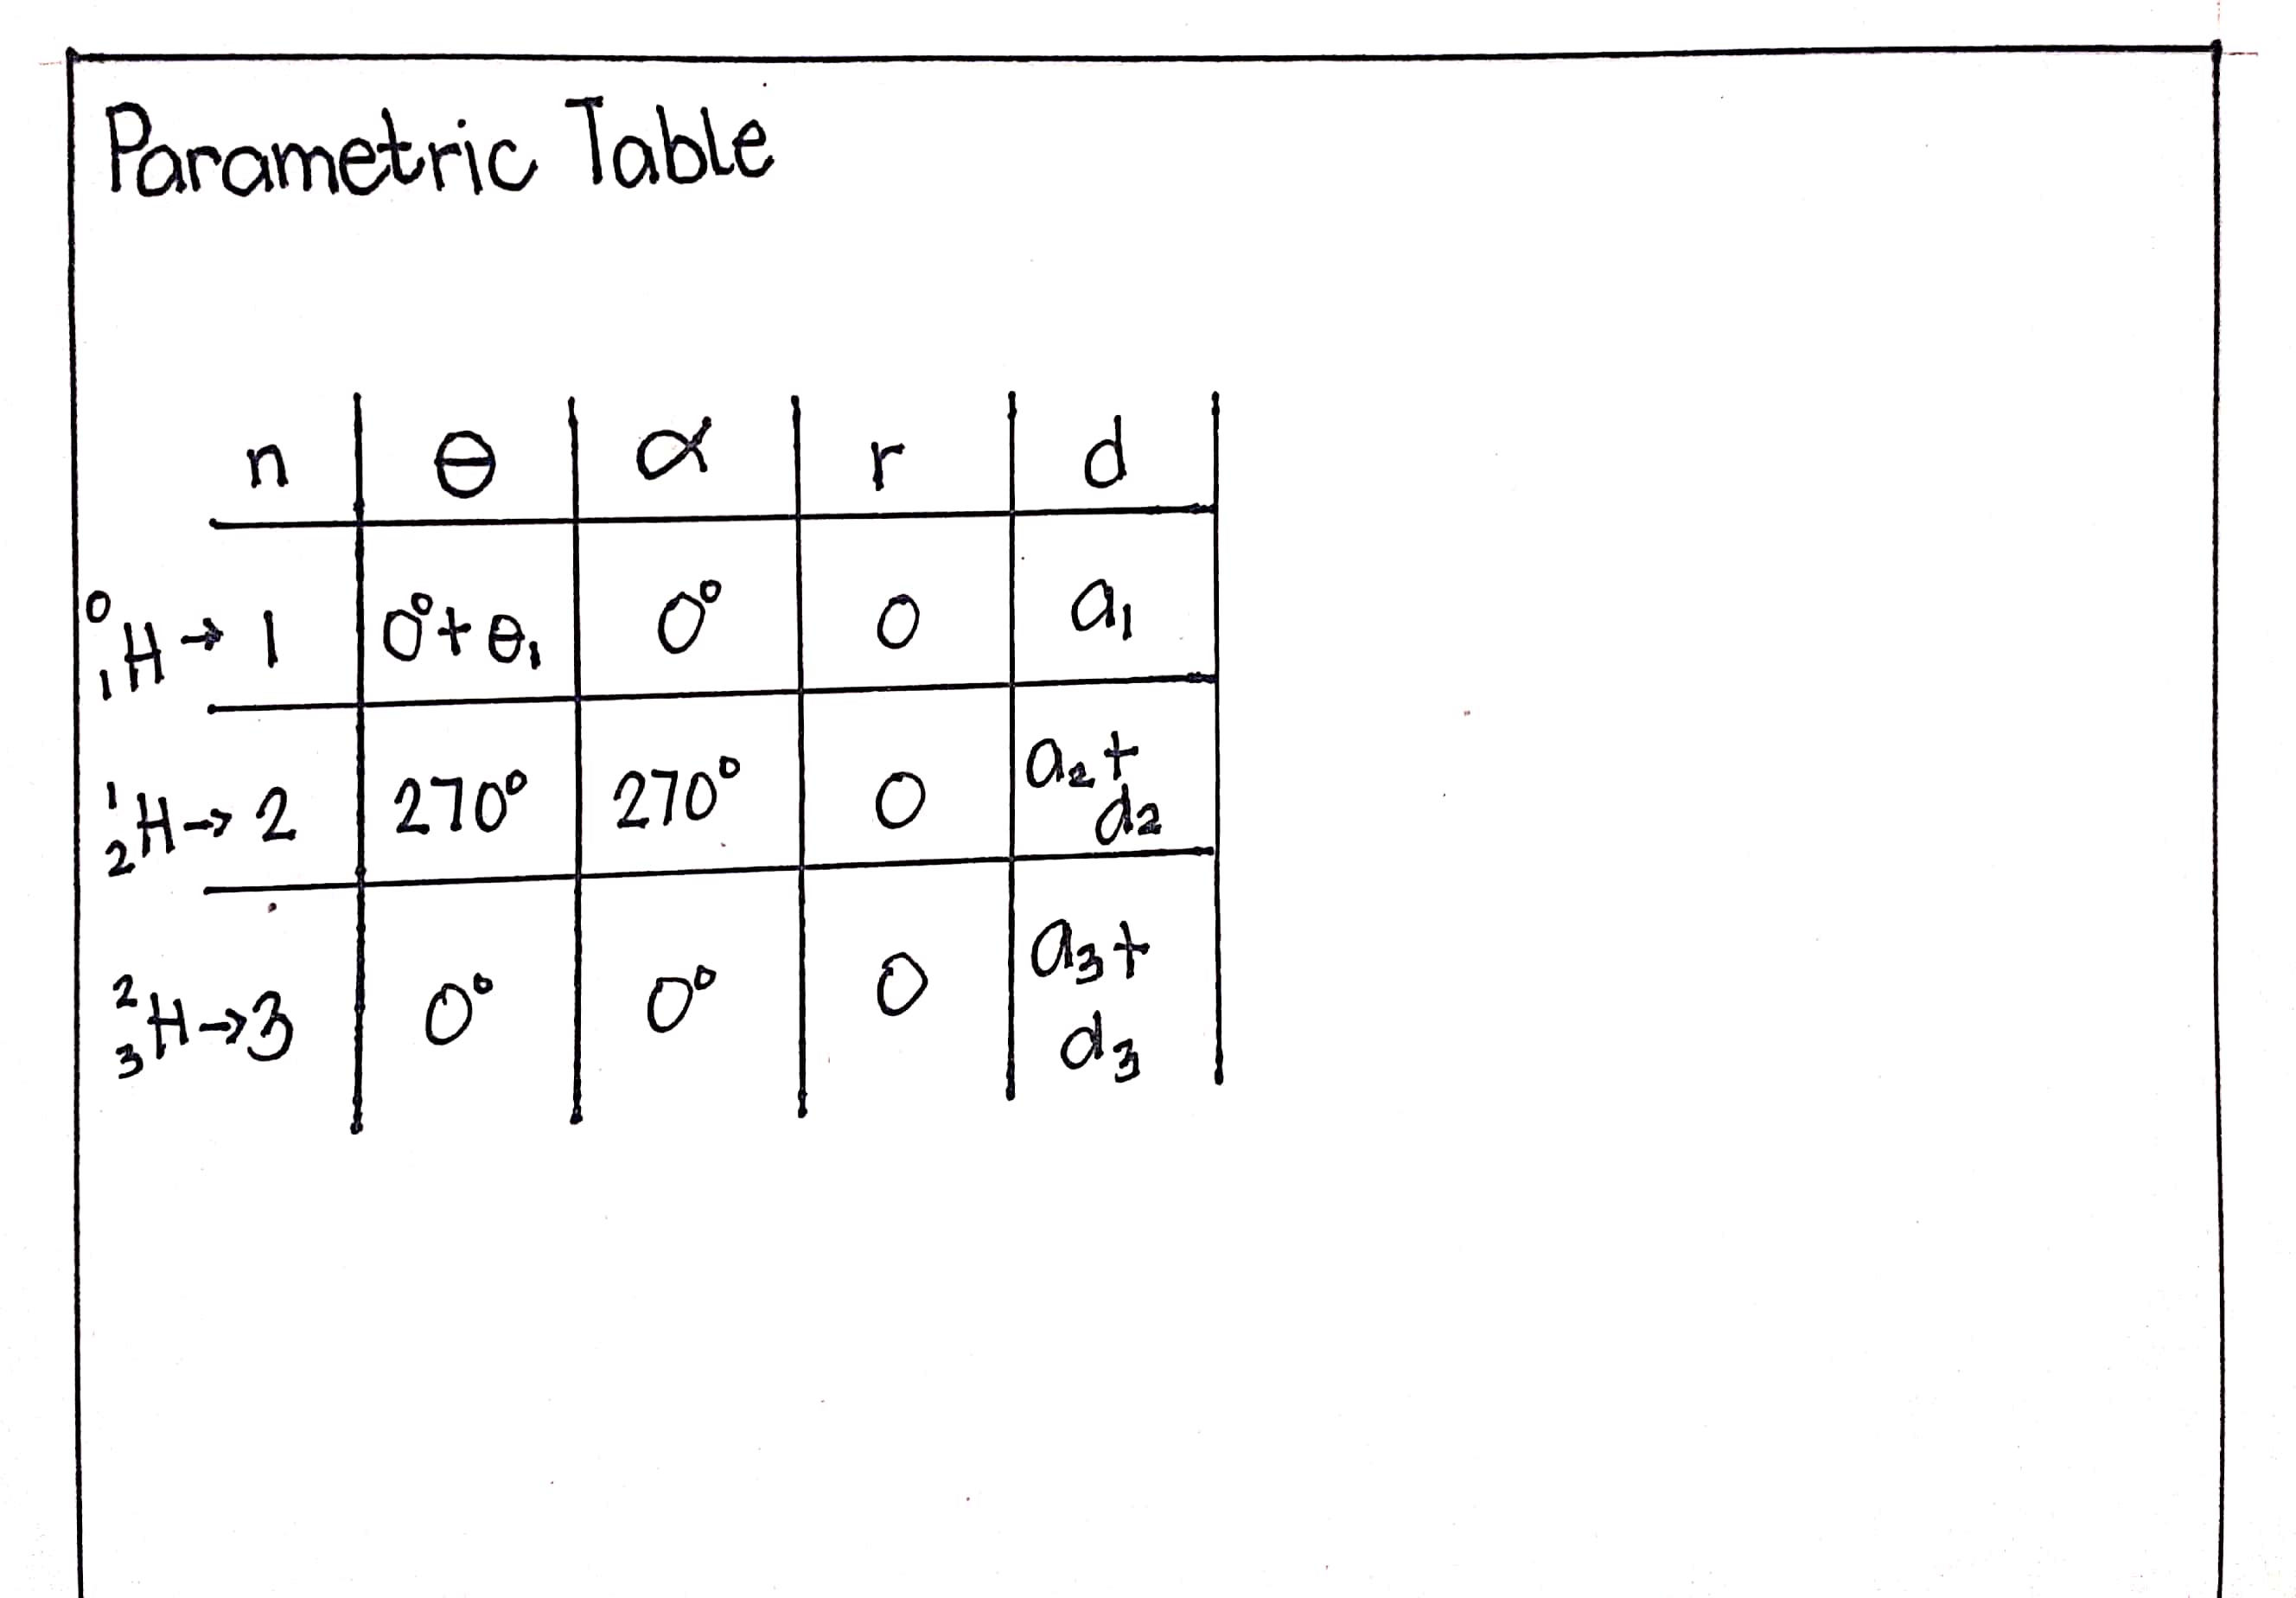 Parametric Table
n θ α r d
⁰₁H → 1 0° + θ₁ 0° 0 a₁
¹₂H → 2 270° 270° 0 a₂ + d₂
²₃H → 3 0° 0° 0 a₃ + d₃